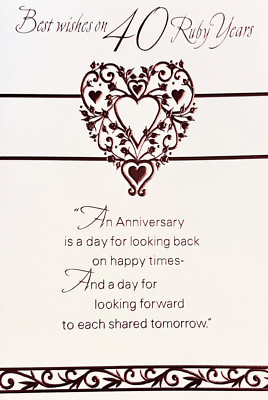 Best wishes on 40 Ruby Years
"An Anniversary
is a day for looking back
on happy times-
And a day for
looking forward
to each shared tomorrow."